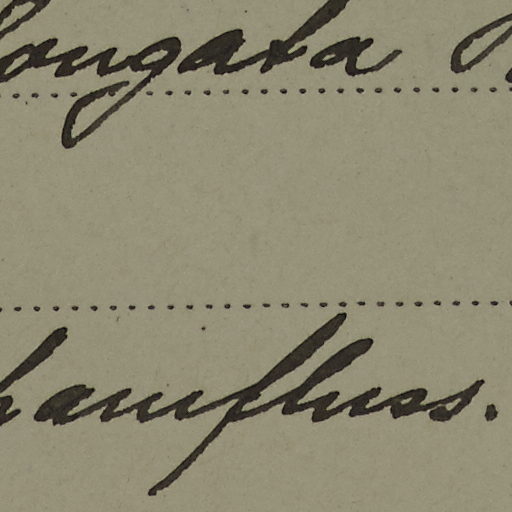 longata
hamfluss.